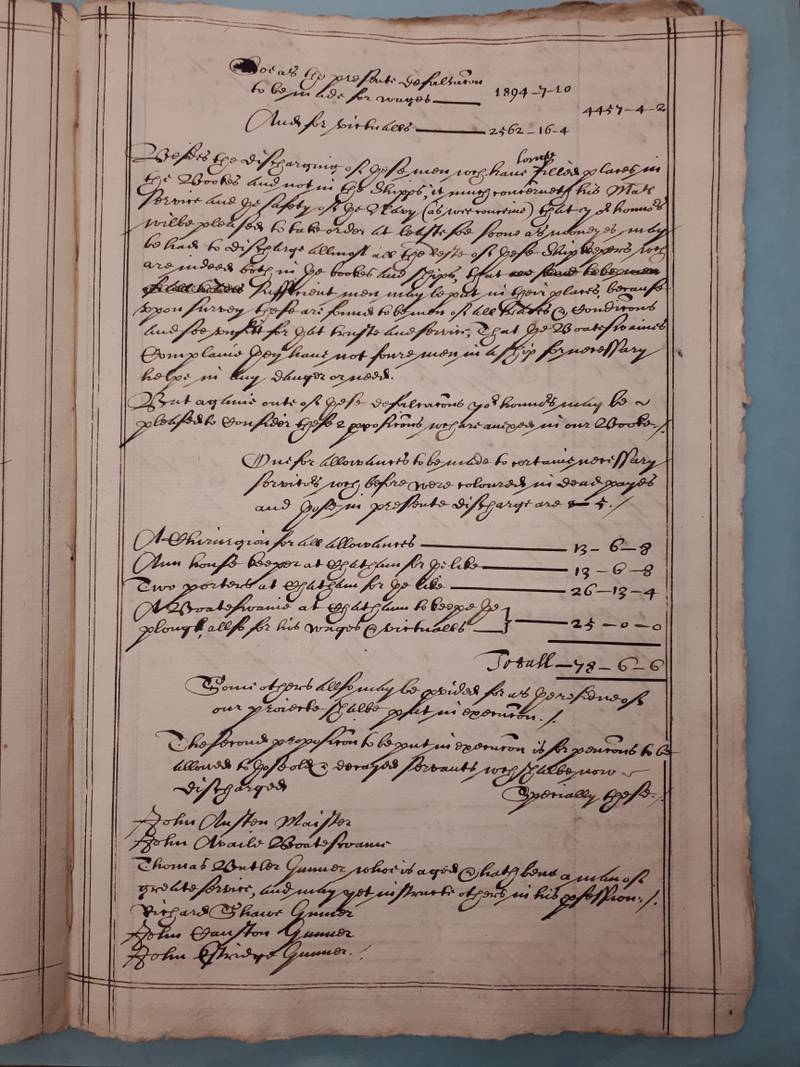 Soe as the presente defalcacon
to be made for wages 1894-7-10
4457-4-2
And for victualls 2562-16-4
longe
Besides the discharging of these men wch have filled places in
the Bookes and not in the Shipps, it much concerneth his Mats
service and the safety of the Navy (as wee conceive) that yor honors
wilbe pleased to take order at leaste soe soone as moneyes may
be had to discharge allmost all the reste of these Shipkeepers wch
are indeed both in the bookes and shipps, that
Sufficient men may be put in their places, because
upon survey these are found to be men of all trades & Condicons
and soe unfitt for that truste and service, That the Boateswaines
Complaine they have not foure men in a ship for necessary
helpe in any danger or need.
But againe oute of these defalcacons yor honors may be
pleased to Consider these 2 ppositions wch are anexed in our Booke./.
One for allowances to be made to certaine necessary
services wch before were coloured in dead payes
and those in presente discharge are 5./
A Chirurgion for all allowances 13-6-8
Ann house keeper at Chatham for the like 13-6-8
Two porters at Chatham for the like 26-13-4
A Boateswaine at Chatham to keepe the
plough, allso for his wages & victualls 25-0-0
Totall 78-6-6
Some others allso may be pvided for as the residue of
our projecte shalbe put in execucon./.
The second proposicon to be put in execucon is for pencons to be
allowed to those old & decayed servants wch shalbe now
discharged Specially these./.
John Austen Maister
John Availe Boateswaine
Thomas Butler Gunner whoe is aged & hath bene a man of
greate service, and may yet instructe others in his pfession./.
Richard Shawe Gunner
John Causton Gunner
John Estridge Gunner./